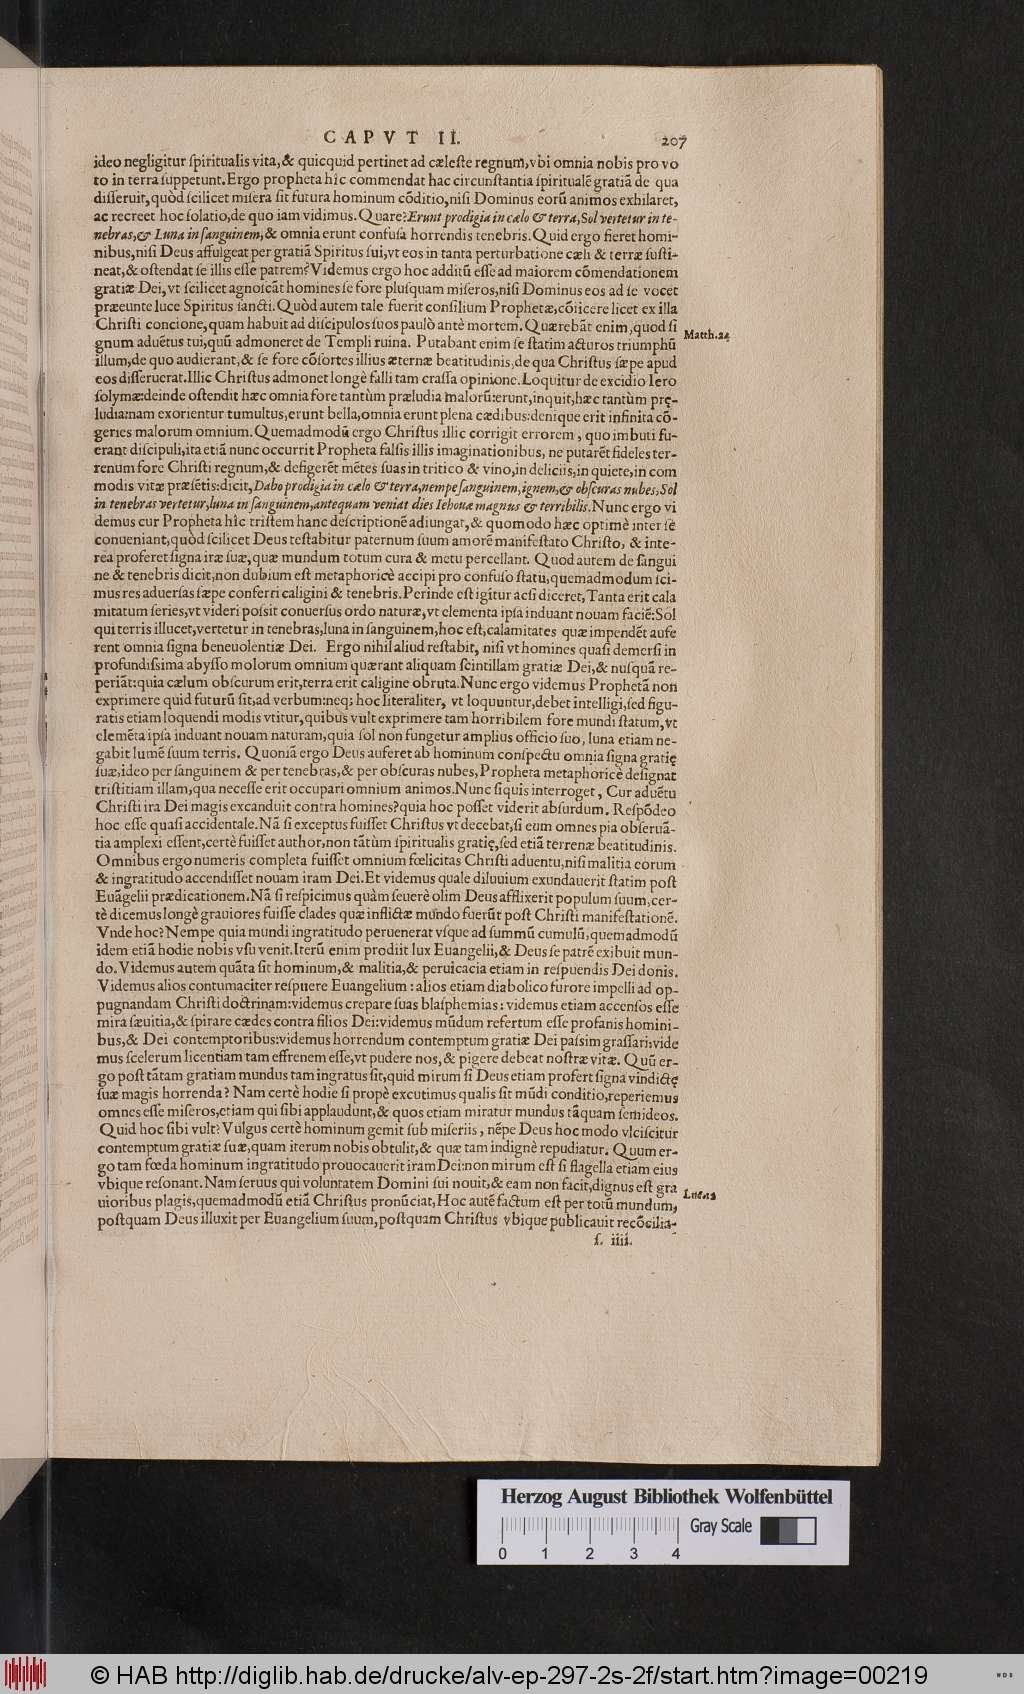 CAPVT II. 207
ideo negligitur ſpiritualis vita,& quicquid pertinet ad cæleſte regnum,vbi omnia nobis pro vo
to in terra ſuppetunt.Ergo propheta hîc commendat hac circunſtantia ſpiritualẽ gratiã de qua
diſſeruit,quòd ſcilicet miſera ſit futura hominum cõditio,niſi Dominus eorũ animos exhilaret,
ac recreet hoc ſolatio,de quo iam vidimus.Quare?Erunt prodigia in cælo & terra,Sol vertetur in te-
nebras,& Luna in ſanguinem,& omnia erunt confuſa horrendis tenebris.Quid ergo fieret homi-
nibus,niſi Deus affulgeat per gratiã Spiritus ſui,vt eos in tanta perturbatione cæli & terræ ſuſti-
neat,& oſtendat ſe illis eſſe patrem?Videmus ergo hoc additũ eſſe ad maiorem cõmendationem
gratiæ Dei,vt ſcilicet agnoſcãt homines ſe fore pluſquam miſeros,niſi Dominus eos ad ſe vocet
præeunte luce Spiritus ſancti.Quòd autem tale fuerit conſilium Prophetæ,cõiicere licet ex illa
Chriſti concione,quam habuit ad diſcipulos ſuos paulò antè mortem.Quærebãt enim,quod ſi
gnum aduẽtus tui,quũ admoneret de Templi ruina. Putabant enim ſe ſtatim acturos triumphũ
Matth.24
illum,de quo audierant,& ſe fore cõſortes illius æternæ beatitudinis,de qua Chriſtus ſæpe apud
eos diſſeruerat.Illic Chriſtus admonet longè falli tam craſſa opinione.Loquitur de excidio Iero
ſolymæ:deinde oſtendit hæc omnia fore tantùm præludia malorũ:erunt,inquit,hæc tantùm prę-
ludia:nam exorientur tumultus,erunt bella,omnia erunt plena cædibus:denique erit infinita cõ-
geries malorum omnium.Quemadmodũ ergo Chriſtus illic corrigit errorem, quo imbuti fu-
erant diſcipuli,ita etiã nunc occurrit Propheta falſis illis imaginationibus, ne putarẽt fideles ter-
renum fore Chriſti regnum,& defigerẽt mẽtes ſuas in tritico & vino,in deliciis,in quiete,in com
modis vitæ præſẽtis:dicit,Dabo prodigia in cælo & terra,nempe ſanguinem,ignem,& obſcuras nubes,Sol
in tenebras vertetur,luna in ſanguinem,antequam veniat dies Iehouæ magnus & terribilis.Nunc ergo vi
demus cur Propheta hîc triſtem hanc deſcriptionẽ adiungat,& quomodo hæc optimè inter ſe
conueniant,quòd ſcilicet Deus teſtabitur paternum ſuum amorẽ manifeſtato Chriſto, & inte-
rea proferet ſigna iræ ſuæ,quæ mundum totum cura & metu percellant. Quod autem de ſangui
ne & tenebris dicit,non dubium eſt metaphoricè accipi pro confuſo ſtatu,quemadmodum ſci-
mus res aduerſas ſæpe conferri caligini & tenebris.Perinde eſt igitur acſi diceret,Tanta erit cala
mitatum ſeries,vt videri poſsit conuerſus ordo naturæ,vt elementa ipſa induant nouam faciẽ:Sol
qui terris illucet,vertetur in tenebras,luna in ſanguinem,hoc eſt,calamitates quæ impendẽt aufe
rent omnia ſigna beneuolentiæ Dei. Ergo nihil aliud reſtabit, niſi vt homines quaſi demerſi in
profundiſsima abyſſo molorum omnium quærant aliquam ſcintillam gratiæ Dei,& nuſquã re-
periãt:quia cælum obſcurum erit,terra erit caligine obruta.Nunc ergo videmus Prophetã non
exprimere quid futurũ ſit,ad verbum:neq; hoc literaliter, vt loquuntur,debet intelligi,ſed figu-
ratis etiam loquendi modis vtitur,quibus vult exprimere tam horribilem fore mundi ſtatum,vt
elemẽta ipſa induant nouam naturam,quia ſol non fungetur amplius officio ſuo, luna etiam ne-
gabit lumẽ ſuum terris. Quoniã ergo Deus auferet ab hominum conſpectu omnia ſigna gratię
ſuæ,ideo per ſanguinem & per tenebras,& per obſcuras nubes,Propheta metaphoricè deſignat
triſtitiam illam,qua neceſſe erit occupari omnium animos.Nunc ſiquis interroget, Cur aduẽtu
Chriſti ira Dei magis excanduit contra homines?quia hoc poſſet viderit abſurdum. Reſpõdeo
hoc eſſe quaſi accidentale.Nã ſi exceptus fuiſſet Chriſtus vt decebat,ſi eum omnes pia obſeruã-
tia amplexi eſſent,certè fuiſſet author,non tãtùm ſpiritualis gratię,ſed etiã terrenæ beatitudinis.
Omnibus ergo numeris completa fuiſſet omnium fœlicitas Chriſti aduentu,niſi malitia eorum
& ingratitudo accendiſſet nouam iram Dei.Et videmus quale diluuium exundauerit ſtatim poſt
Euãgelii prædicationem.Nã ſi reſpicimus quàm ſeuerè olim Deus afflixerit populum ſuum,cer-
tè dicemus longè grauiores fuiſſe clades quæ inflictæ mundo fuerũt poſt Chriſti manifeſtationẽ.
Vnde hoc?Nempe quia mundi ingratitudo peruenerat vſque ad ſummũ cumulũ,quemadmodũ
idem etiã hodie nobis vſu venit.Iterũ enim prodiit lux Euangelii,& Deus ſe patrẽ exibuit mun-
do.Videmus autem quãta ſit hominum,& malitia,& peruicacia etiam in reſpuendis Dei donis.
Videmus alios contumaciter reſpuere Euangelium : alios etiam diabolico furore impelli ad op-
pugnandam Chriſti doctrinam:videmus crepare ſuas blaſphemias : videmus etiam accenſos eſſe
mira ſæuitia,& ſpirare cædes contra filios Dei:videmus mũdum refertum eſſe profanis homini-
bus,& Dei contemptoribus:videmus horrendum contemptum gratiæ Dei paſsim graſſari:vide
mus ſcelerum licentiam tam effrenem eſſe,vt pudere nos,& pigere debeat noſtræ vitæ. Quũ er-
go poſt tãtam gratiam mundus tam ingratus ſit,quid mirum ſi Deus etiam profert ſigna vindictę
ſuæ magis horrenda? Nam certè hodie ſi propè excutimus qualis ſit mũdi conditio,reperiemus
omnes eſſe miſeros,etiam qui ſibi applaudunt,& quos etiam miratur mundus tãquam ſemideos.
Quid hoc ſibi vult?Vulgus certè hominum gemit ſub miſeriis, nẽpe Deus hoc modo vlciſcitur
contemptum gratiæ ſuæ,quam iterum nobis obtulit,& quæ tam indignè repudiatur. Quum er-
go tam fœda hominum ingratitudo prouocauerit iram Dei:non mirum eſt ſi flagella etiam eius
vbique reſonant.Nam ſeruus qui voluntatem Domini ſui nouit,& eam non facit,dignus eſt gra
uioribus plagis,quemadmodũ etiã Chriſtus pronũciat,Hoc autẽ factum eſt per totũ mundum,
poſtquam Deus illuxit per Euangelium ſuum,poſtquam Chriſtus vbique publicauit recõcilia-
ſ. iiii.
Herzog August Bibliothek Wolfenbüttel
Gray Scale
0 1 2 3 4
© HAB http://diglib.hab.de/drucke/alv-ep-297-2s-2f/start.htm?image=00219